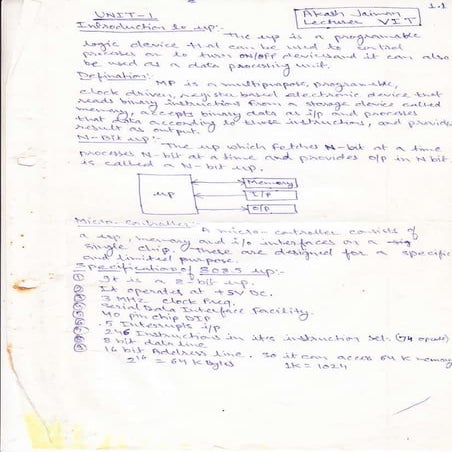 1.1
UNIT-1
Akash Jaiman
Lecturer VIT
Introduction to up:-
The up is a programable
logic device that can be used to control
processes or to turn ON/OFF devices and it can also
be used as a data processing unit.
Definition:-
MP is a multipurpose, programable,
clock driven, register based electronic device that
reads binary instructions from a storage device called
memory, accepts binary data as i/p and processes
that data according to those instructions, and provides
result as output.
N-Bit up:-
The up which fetches N-bit at a time
processes N-bit at a time and provides o/p in N bit
is called a N-bit up.
up
Memory
I/P
O/P
Micro-controller:-
A micro-controller consists of
a up, memory and i/o interfaces on a
single chip, these are designed for a specific
and limited purpose.
Specification of 8085 up:-
It is a 8-bit up.
It operates at +5V DC.
3 MHz clock Freq.
Serial Data Interface Facility.
40 pin chip DIP
5 Interrupts i/p
246 Instructions in its instruction set. (74 opcode)
8 bit data line
16 bit Address line. so it can access 64 K memory
2^16 = 64 K Bytes 1K = 1024